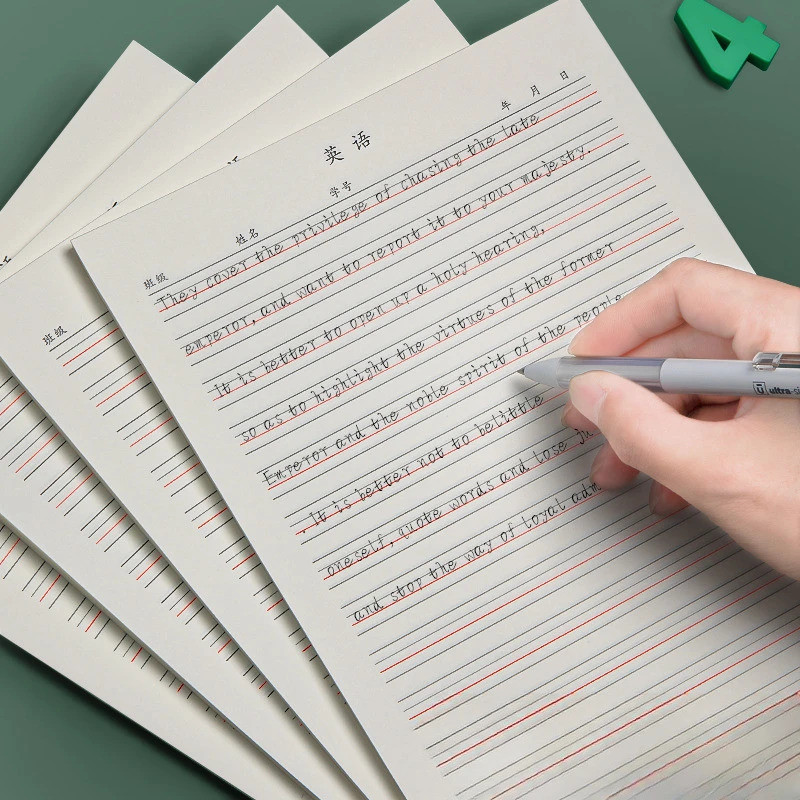 4
英语
年 月 日
班级 姓名 学号
They cover the privilege of chasing the late
emperor, and want to report it to your majesty.
It is better to open up a holy hearing,
so as to highlight the virtues of the former
Emperor and the noble spirit of the people
. It is better not to belittle
oneself, quote words and lose
and stop the way of loyal
班级
ultra-